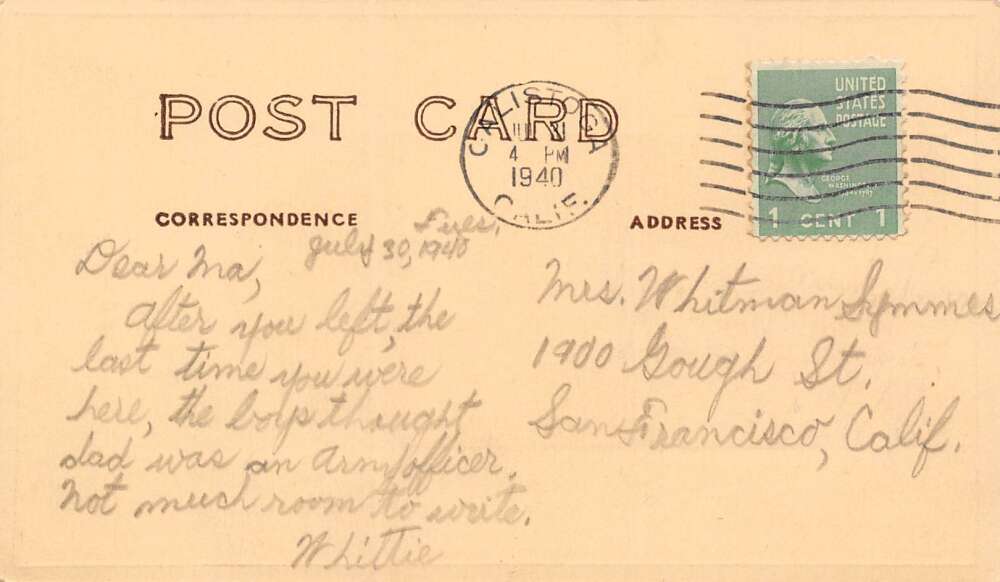 POST CARD
CALISTOGA
JUL
4 PM
1940
CALIF.
UNITED
STATES
POSTAGE
GEORGE
WASHINGTON
1 CENT 1
CORRESPONDENCE
ADDRESS
Tues.
July 30, 1940
Dear Ma,
After you left, the
last time you were
here, the boys thought
dad was an Army officer.
Not much room to write.
Whittie
Mrs. Whitman Symmes
1900 Gough St.
San Francisco, Calif.